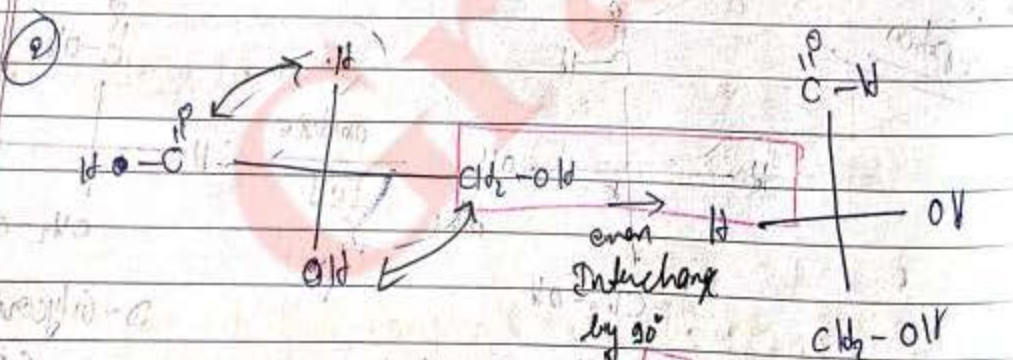 Q
H
O
H - C
CH₂-OH
OH
→
even
Interchange
by 90°
O
C - H
H
OH
CH₂ - OH